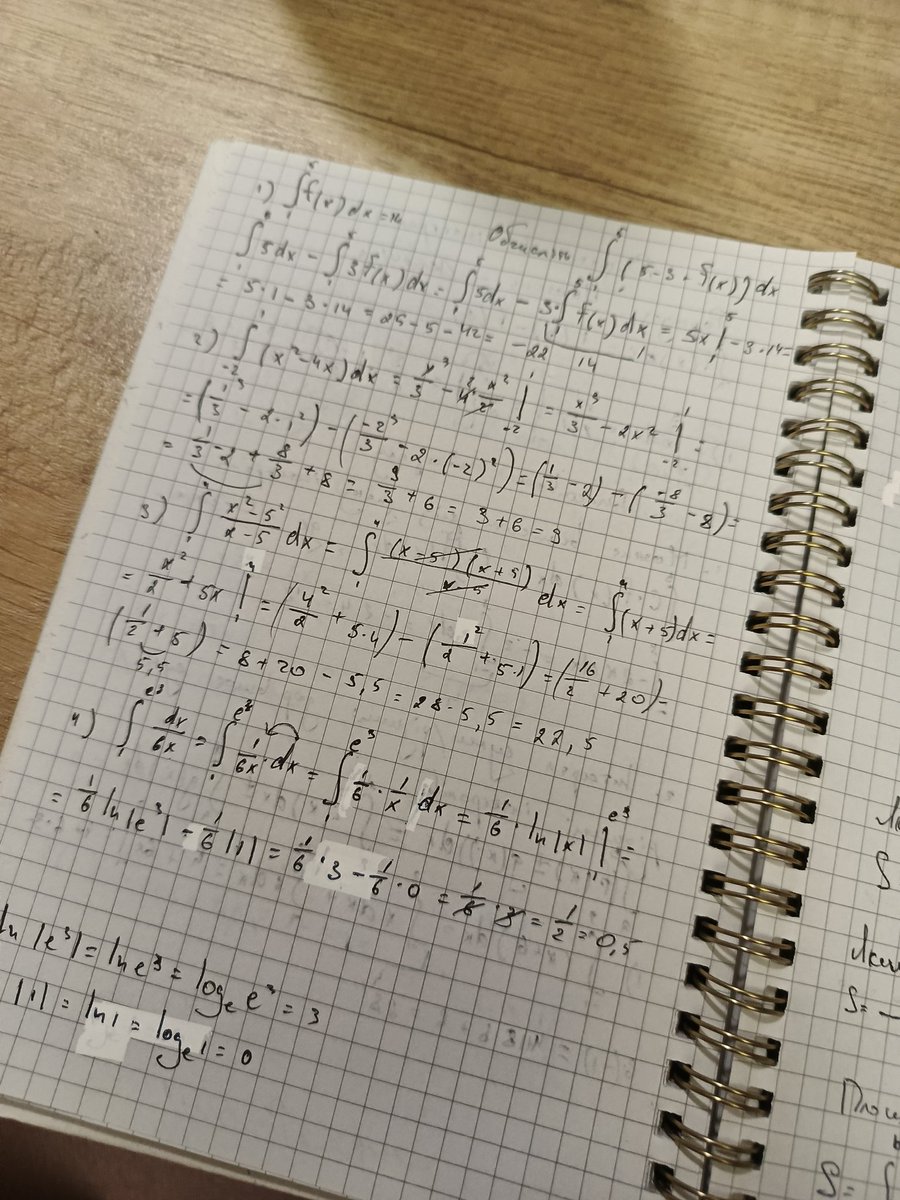 1) ∫₁⁵ f(x) dx = 14 Обчислити ∫₁⁵ (5-3·f(x)) dx
∫₁⁵ 5dx - ∫₁⁵ 3f(x) dx = ∫₁⁵ 5dx - 3·∫₁⁵ f(x) dx = 5x |₁⁵ - 3·14 =
14
= 5·1 - 3·14 = 25 - 5 - 42 = -22
2) ∫₋₂¹ (x²-4x) dx = x³/3 - 4 x²/2 |₋₂¹ = x³/3 - 2x² |₋₂¹ =
= (1³/3 - 2·1²) - (-2³/3 - 2·(-2)²) = (1/3 - 2) - (-8/3 - 8) =
= 1/3 - 2 + 8/3 + 8 = 9/3 + 6 = 3 + 6 = 9
3) ∫₁⁴ (x²-5²)/(x-5) dx = ∫₁⁴ (x-5)(x+5)/(x-5) dx = ∫₁⁴ (x+5) dx =
= x²/2 + 5x |₁⁴ = (4²/2 + 5·4) - (1²/2 + 5·1) = (16/2 + 20) -
(1/2 + 5) = 8 + 20 - 5,5 = 28 - 5,5 = 22,5
5,5
4) ∫₁^e³ dx/6x = ∫₁^e³ 1/6x · dx = ∫₁^e³ 1/6 · 1/x dx = 1/6 · ln|x| |₁^e³ =
= 1/6 ln|e³| - 1/6 |1| = 1/6 · 3 - 1/6 · 0 = 1/6 · 3 = 1/2 = 0,5
ln |e³| = ln e³ = logₑ e³ = 3
|1| = ln 1 = logₑ 1 = 0
S
S = —
S = ∫